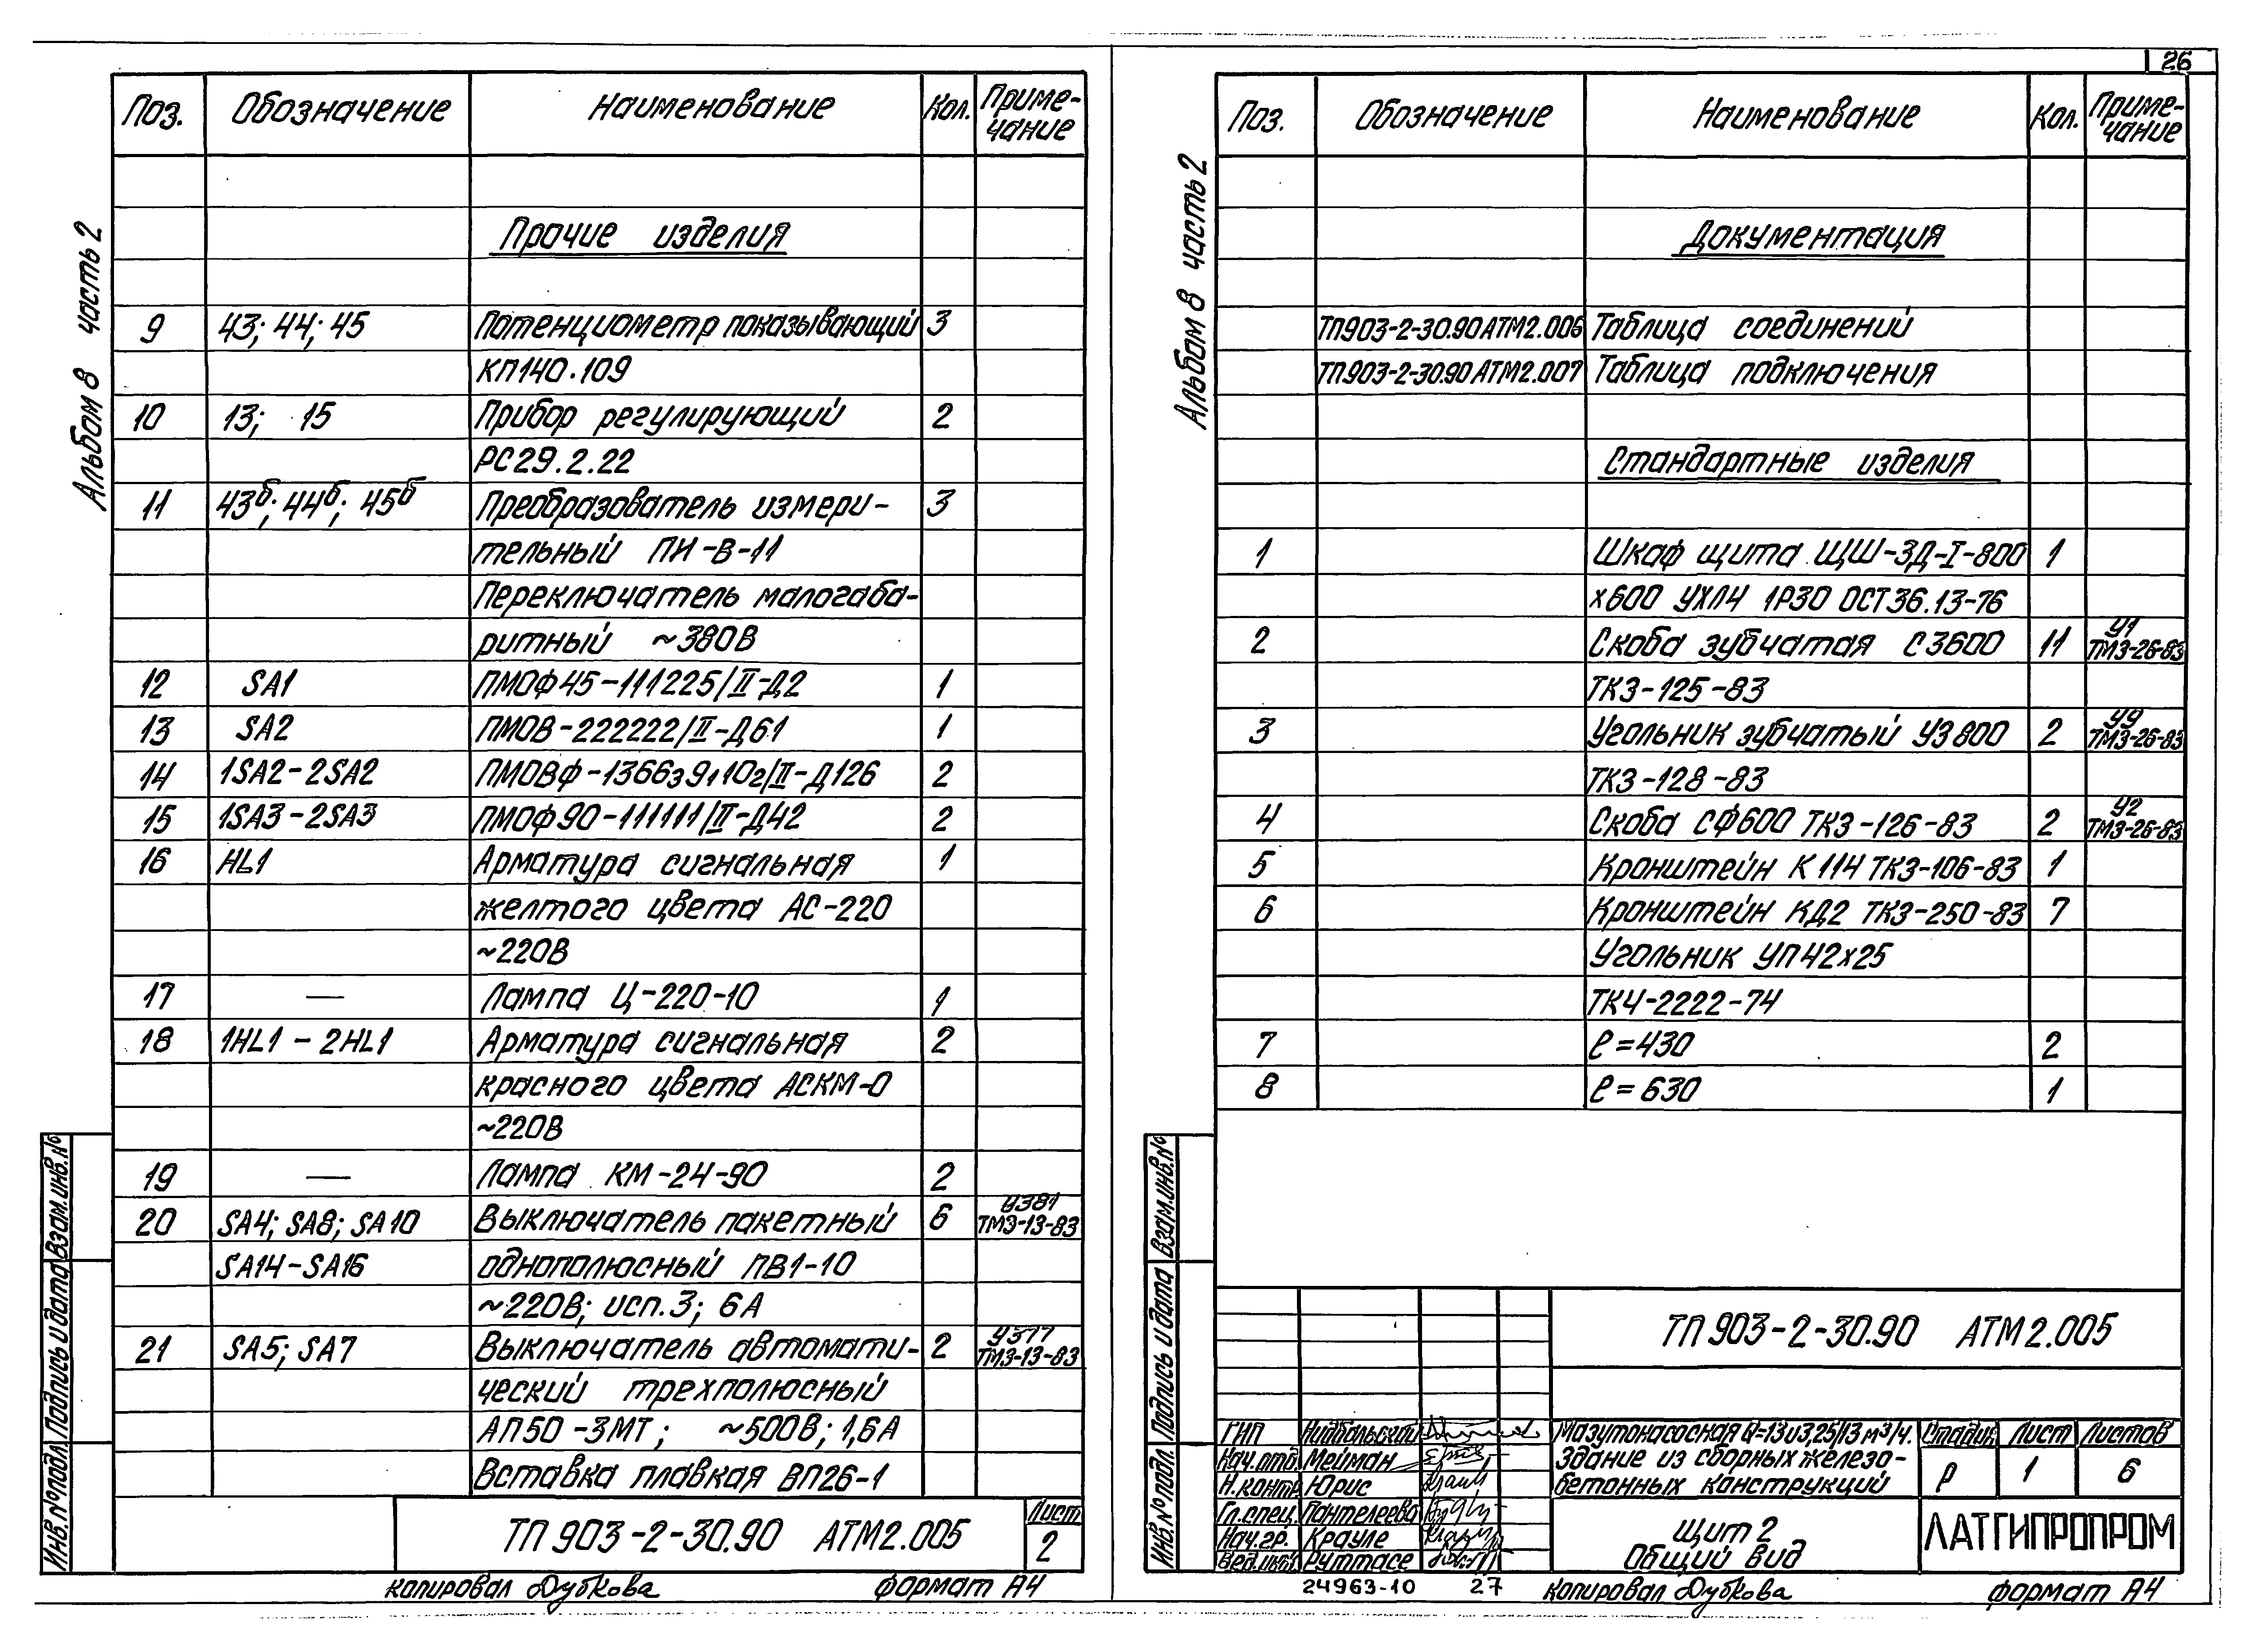 26
Альбом 8 часть 2
Поз. Обозначение Наименование Кол. Приме-
чание
Прочие изделия
9 43; 44; 45 Потенциометр показывающий 3
КП140.109
10 13; 15 Прибор регулирующий 2
РС29.2.22
11 43б; 44б; 45б Преобразователь измери- 3
тельный ПИ-В-11
Переключатель малогаба-
ритный ~380В
12 SA1 ПМОФ45-111225/II-Д2 1
13 SA2 ПМОВ-222222/II-Д61 1
14 1SA2-2SA2 ПМОВФ-1366з9110г/II-Д126 2
15 1SA3-2SA3 ПМОФ90-111111/II-Д42 2
16 HL1 Арматура сигнальная 1
желтого цвета АС-220
~220В
17 — Лампа Ц-220-10 1
18 1HL1-2HL1 Арматура сигнальная 2
красного цвета АСКМ-О
~220В
19 — Лампа КМ-24-90 2
20 SA4; SA8; SA10 Выключатель пакетный 6 У381
ТМ3-13-83
SA14-SA16 однополюсный ПВ1-10
~220В; исп.3; 6А
21 SA5; SA7 Выключатель автомати- 2 У377
ТМ3-13-83
ческий трехполюсный
АП50-3МТ; ~500В; 1,6А
Вставка плавкая ВП26-1
ТП 903-2-30.90 АТМ2.005
Лист
2
Инв.№подл. Подпись и дата Взам.инв.№
копировал Дубкова формат А4
Альбом 8 часть 2
Поз. Обозначение Наименование Кол. Приме-
чание
Документация
ТП903-2-30.90 АТМ2.006 Таблица соединений
ТП903-2-30.90 АТМ2.007 Таблица подключения
Стандартные изделия
1 Шкаф щита ЩШ-3Д-I-800 1
х600 УХЛ4 1Р30 ОСТ36.13-76
2 Скоба зубчатая С3600 11 У1
ТМ3-26-83
ТК3-125-83
3 Угольник зубчатый У3800 2 У9
ТМ3-26-83
ТК3-128-83
4 Скоба СФ600 ТК3-126-83 2 У2
ТМ3-26-83
5 Кронштейн К114 ТК3-106-83 1
6 Кронштейн КД2 ТК3-250-83 7
Угольник УП42х25
ТК4-2222-74
7 ℓ=430 2
8 ℓ=630 1
ТП 903-2-30.90 АТМ2.005
ГИП Нидбальский
Нач.отд. Мейман
Н.контр. Юрис
Гл.спец. Пантелеева
Нач.гр. Крауле
Вед.инж. Руттасе
Мазутонасосная Q=13и3,25/13 м³/ч.
Здание из сборных железо-
бетонных конструкций
Стадия Лист Листов
Р 1 6
Щит 2
Общий вид
ЛАТГИПРОПРОМ
Инв.№подл. Подпись и дата Взам.инв.№
24963-10 27 копировал Дубкова формат А4